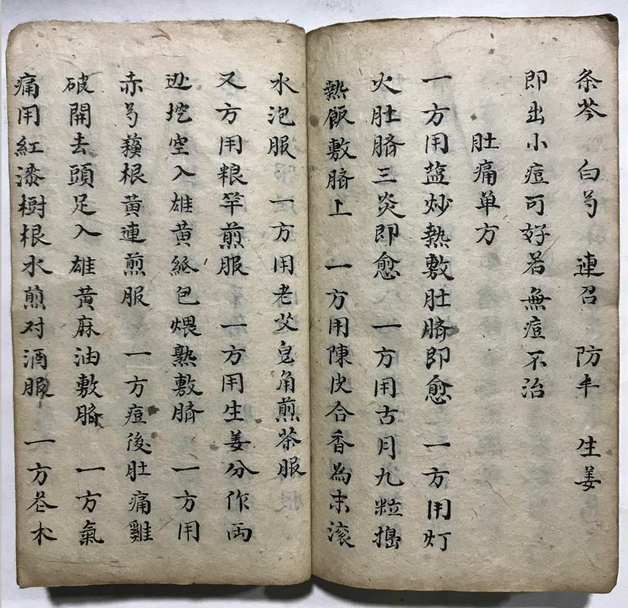 条芩 白芍 連召 防丰 生姜
即出小痘可好若無痘不治
肚痛单方
一方用盐炒熱敷肚臍即愈 一方用灯
火肚臍三炎即愈 一方用古月九粒搗
熱飯敷臍上 一方用陳皮合香為末滚
水泡服 一方用老艾皂角煎茶服
又方用粮竿煎服 一方用生姜分作両
边挖空入雄黄紙包煨熟敷臍 一方用
赤芍根黄連煎服 一方痘後肚痛雞
破開去頭足入雄黄麻油敷臍 一方氣
痛用紅漆樹根水煎对酒服 一方苍木